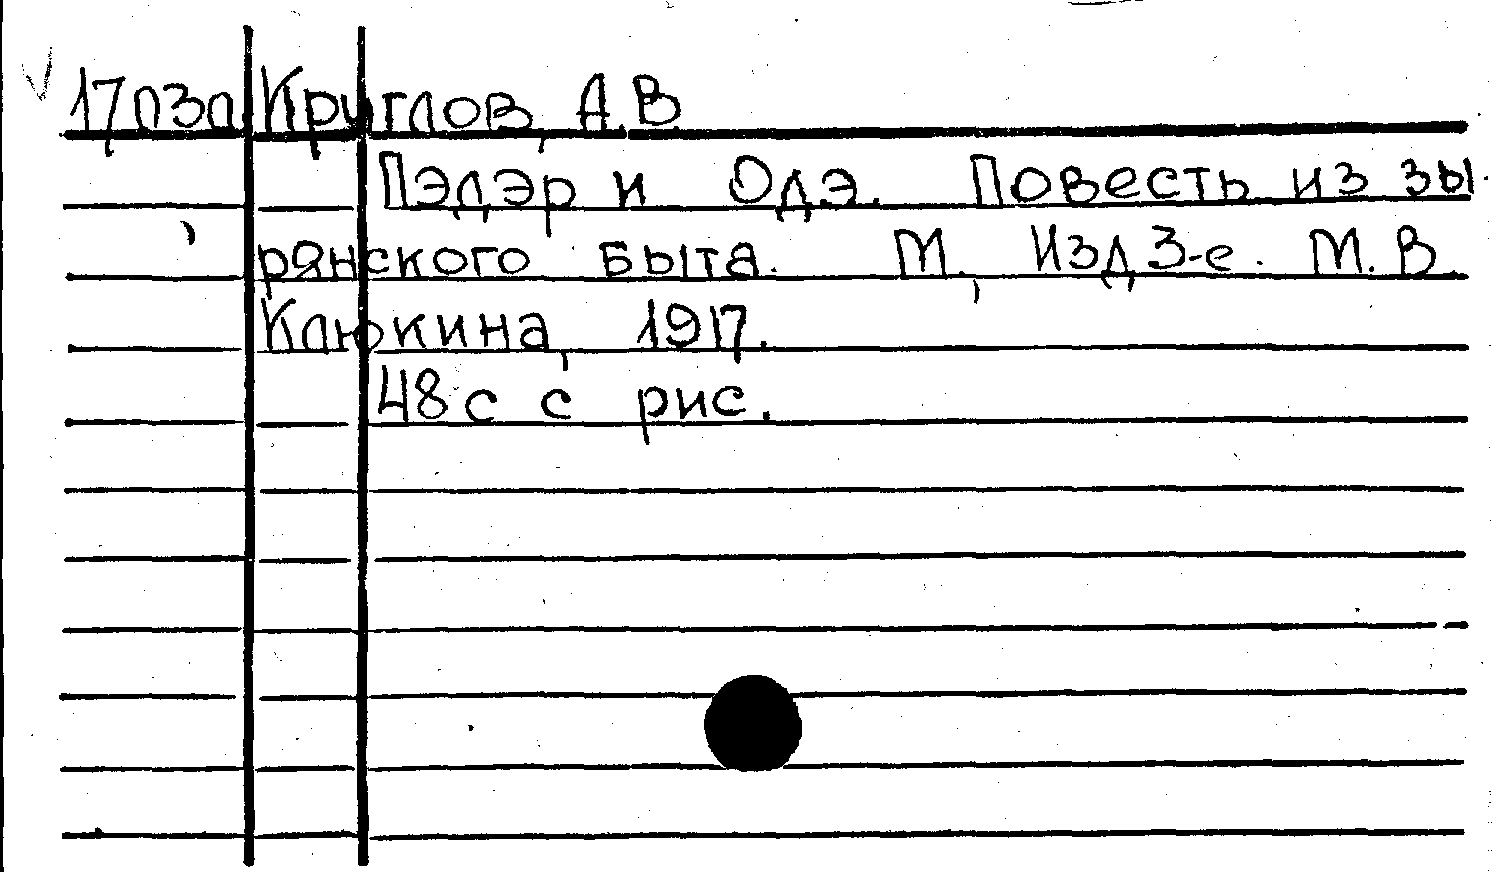 17пзп Круглов, А.В.
Пэдэр и Одэ. Повесть из зы-
рянского быта. М., Изд 3-е. М.В.
Клюкина, 1917.
48 с с рис.